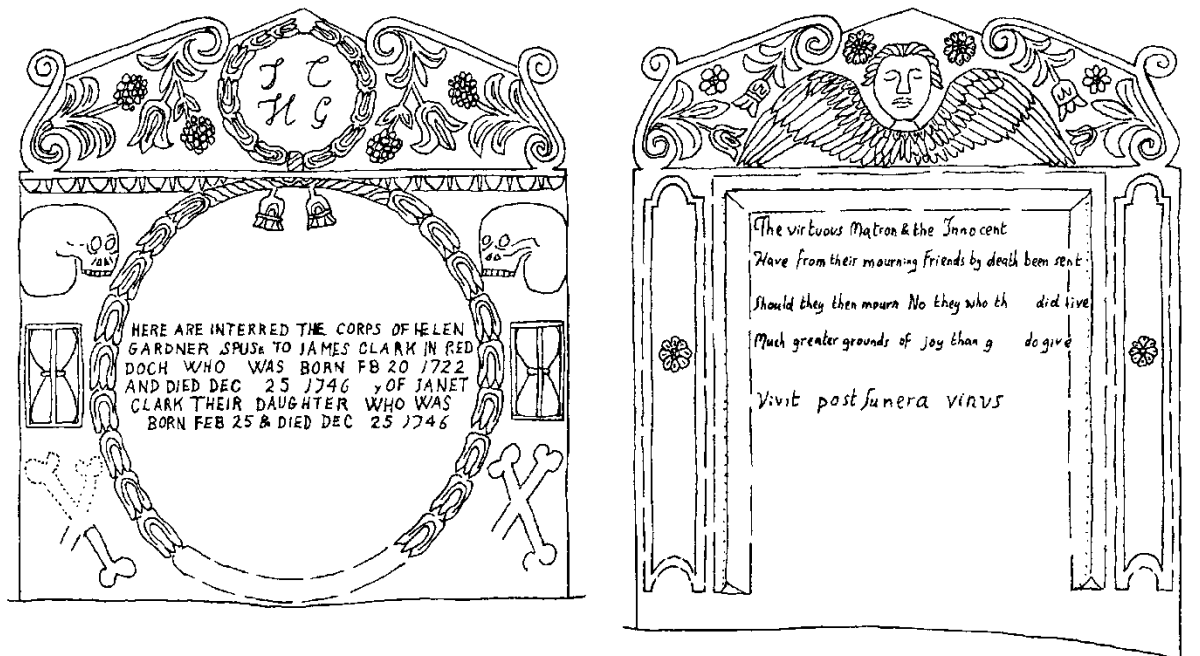 J C
H G
HERE ARE INTERRED THE CORPS OF HELEN
GARDNER SPUSE TO JAMES CLARK IN RED
DOCH WHO WAS BORN FB 20 1722
AND DIED DEC 25 1746 y OF JANET
CLARK THEIR DAUGHTER WHO WAS
BORN FEB 25 & DIED DEC 25 1746
The virtuous Matron & the Innocent
Have from their mourning Friends by death been sent
Should they then mourn No they who th did live
Much greater grounds of joy than g do give
Vivit post funera virtus